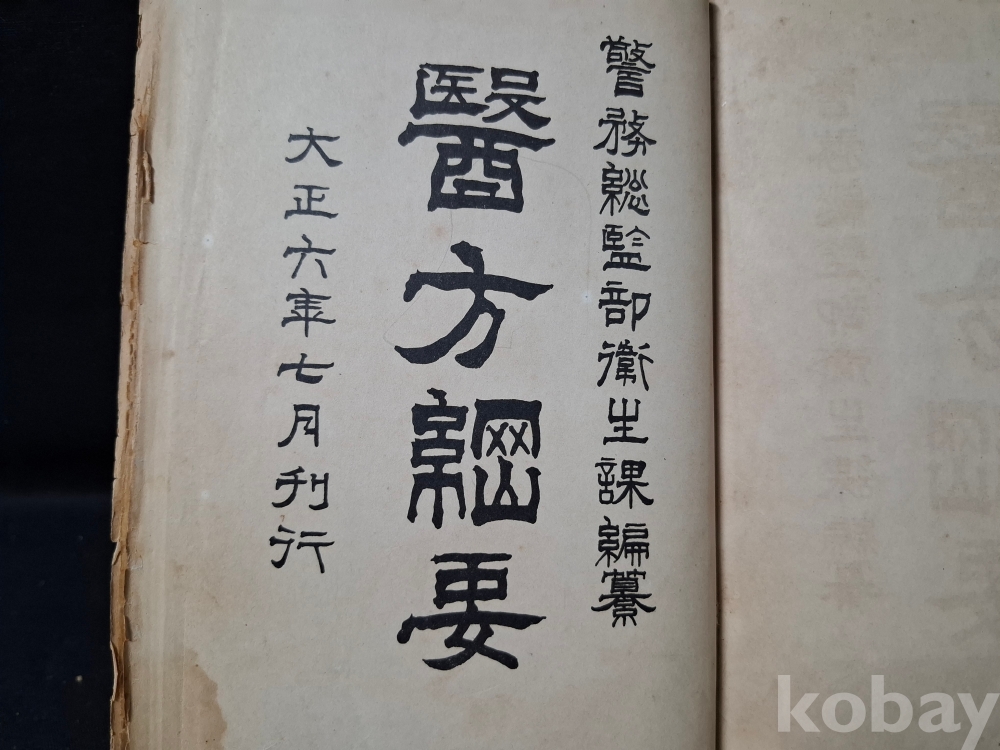 警務総監部衛生課編纂
醫方綱要
大正六年七月刊行
kobay